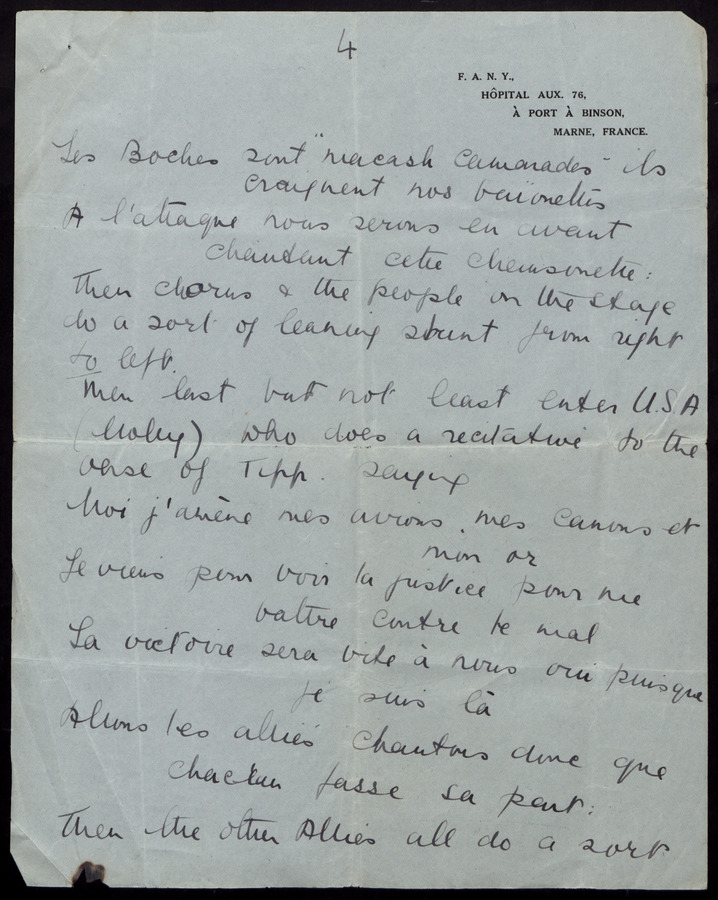 4
F. A. N. Y.,
HÔPITAL AUX. 76,
À PORT À BINSON,
MARNE, FRANCE.
Les Boches sont "macash camarades" ils
craignent nos baïonettes
A l'attaque nous serons en avant
chantant cette chansonette:
Then chorus & the people on the stage
do a sort of leaning stunt from right
to left.
Then last but not least enter U.S.A
(Moky) who does a recitative to the
verse of Tipp. saying
Moi j'amène mes avions, mes canons et
mon or
Je viens pour voir la justice pour me
battre contre le mal
La victoire sera vite à nous oui puisque
je suis là
Allons les alliés chantons donc que
chacun fasse sa part:
Then the other Allies all do a sort